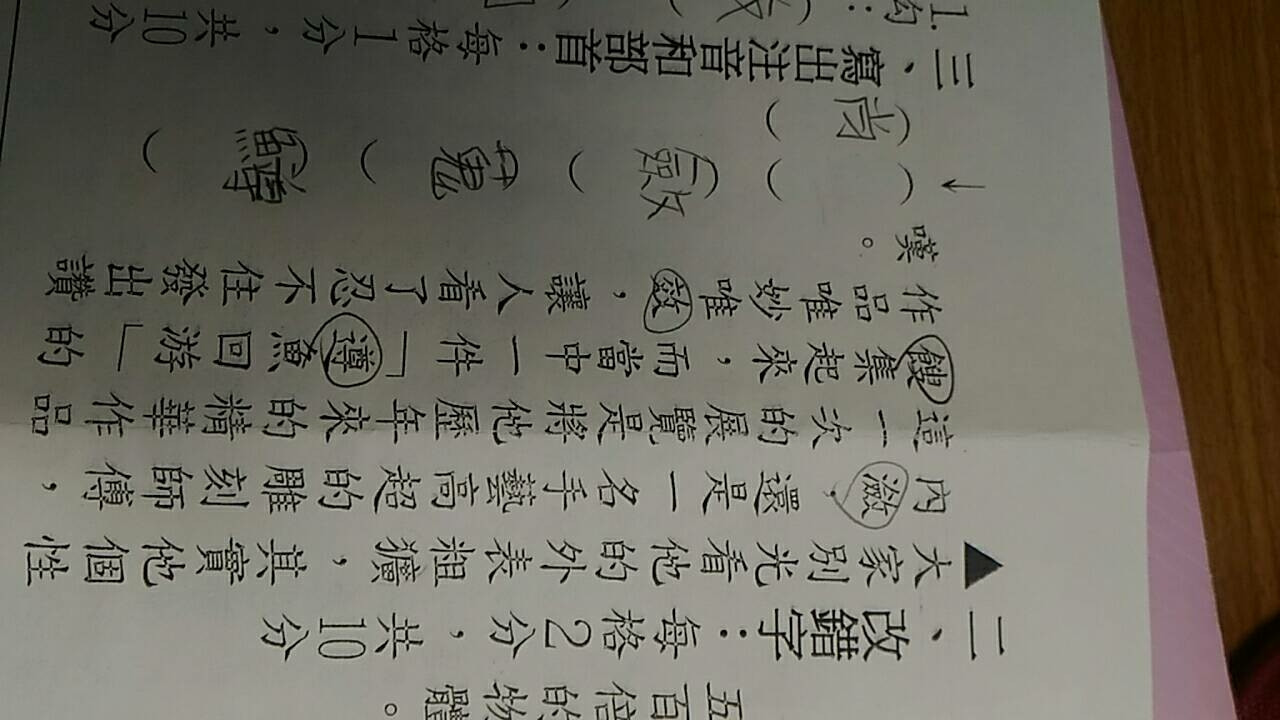 五百倍的物體。
二、改錯字：每格2分，共10分
▲大家別光看他的外表粗獷，其實他個性
內瀲，還是一名手藝高超的雕刻師傅，
這一次的展覽是將他歷年來的精華作品
餿集起來，而當中一件「遵魚回游」的
作品唯妙唯效，讓人看了忍不住發出讚
嘆。
↓（ ）（斂）（蒐）（鱒）
（尚）
三、寫出注音和部首：每格1分，共10分
1.